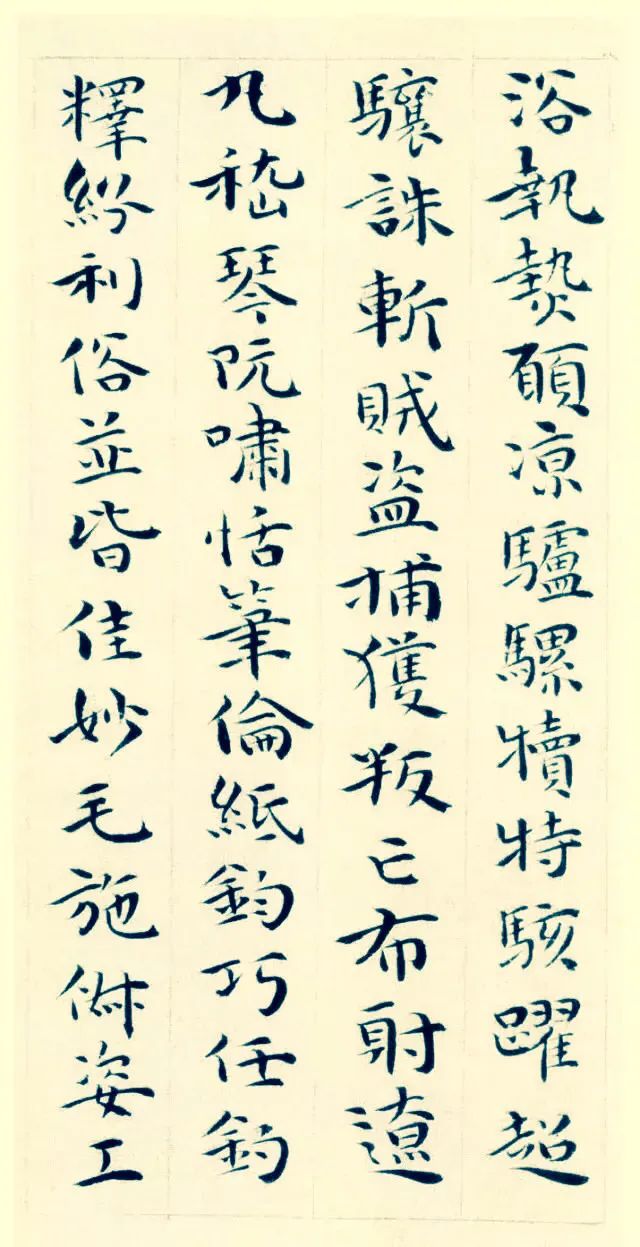 浴執熱願涼驢騾犢特駭躍超
驤誅斬賊盜捕獲叛亡布射遼
丸嵇琴阮嘯恬筆倫紙鈞巧任釣
釋紛利俗並皆佳妙毛施俶姿工